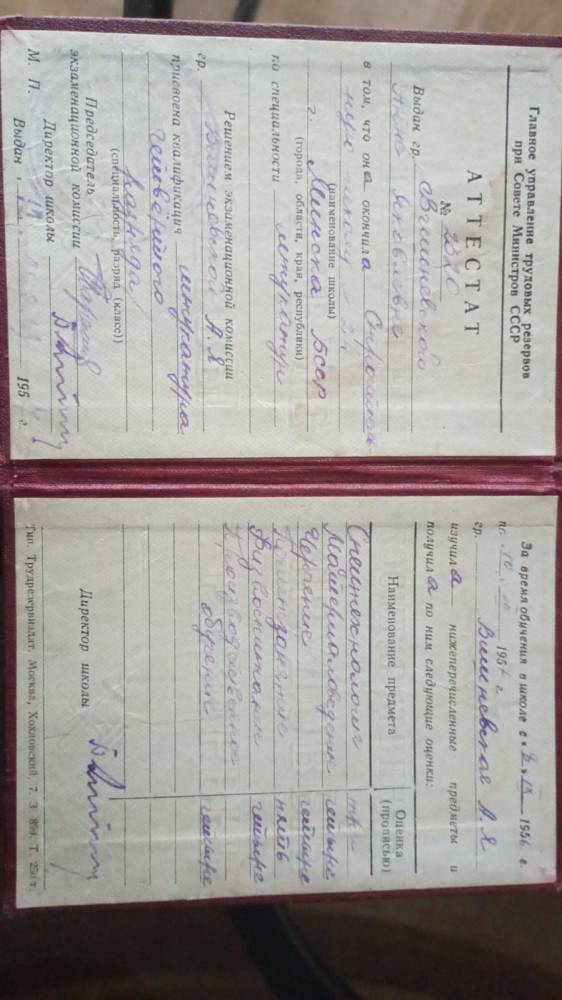 Главное управление трудовых резервов
при Совете Министров СССР
АТТЕСТАТ
№
Выдан гр. Вишневской
Анне Яковлевне
в том, что она окончила Строительную
школу
(наименование школы)
г. Минска БССР
(города, области, края, республики)
по специальности штукатур
Решением экзаменационной комиссии
гр. Вишневской А.Я
присвоена квалификация штукатура
четвёртого
разряда
(специальность, разряд (класс))
Председатель
экзаменационной комиссии
М. П. Директор школы
Выдан 195 г.
За время обучения в школе с 1956 г.
по 195 г.
гр. Вишневская А.Я
изучила нижеперечисленные предметы и
получила по ним следующие оценки:
Наименование предмета Оценка (прописью)
Спецтехнология три
Материаловедение четыре
Черчение четыре
пять
Физвоспитание четыре
Производственное
обучение четыре
Директор школы
Тип. Трудрезервиздат. Москва, Хохловский, 7. З